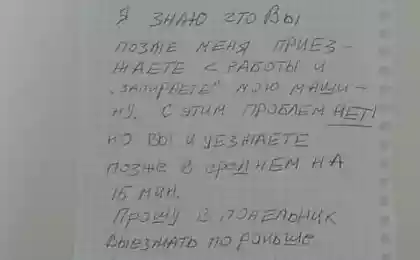 Я ЗНАЮ ЧТО ВЫ
ПОЗЖЕ МЕНЯ ПРИЕЗ-
ЖАЕТЕ С РАБОТЫ И
„ЗАПИРАЕТЕ" МОЮ МАШИ-
НУ. С ЭТИМ ПРОБЛЕМ НЕТ!
НО ВЫ И УЕЗЖАЕТЕ
ПОЗЖЕ В СРЕДНЕМ НА
15 МИН.
ПРОШУ В ПОНЕЛЬНИК
ВЫЕЗЖАТЬ ПО РАНЬШЕ